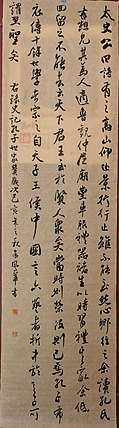 太史公曰詩有之高山仰止景行行止雖不能至然心鄉往之余讀孔氏
書想見其為人適魯觀仲尼廟堂車服禮器諸生以時習禮其家余低
回留之不能去云天下君王至于賢人衆矣當時則榮沒則已焉孔子布
衣傳十餘世學者宗之自天子王侯中國言六藝者折中於夫子可
謂至聖矣 右錄史記孔子世家贊歲次